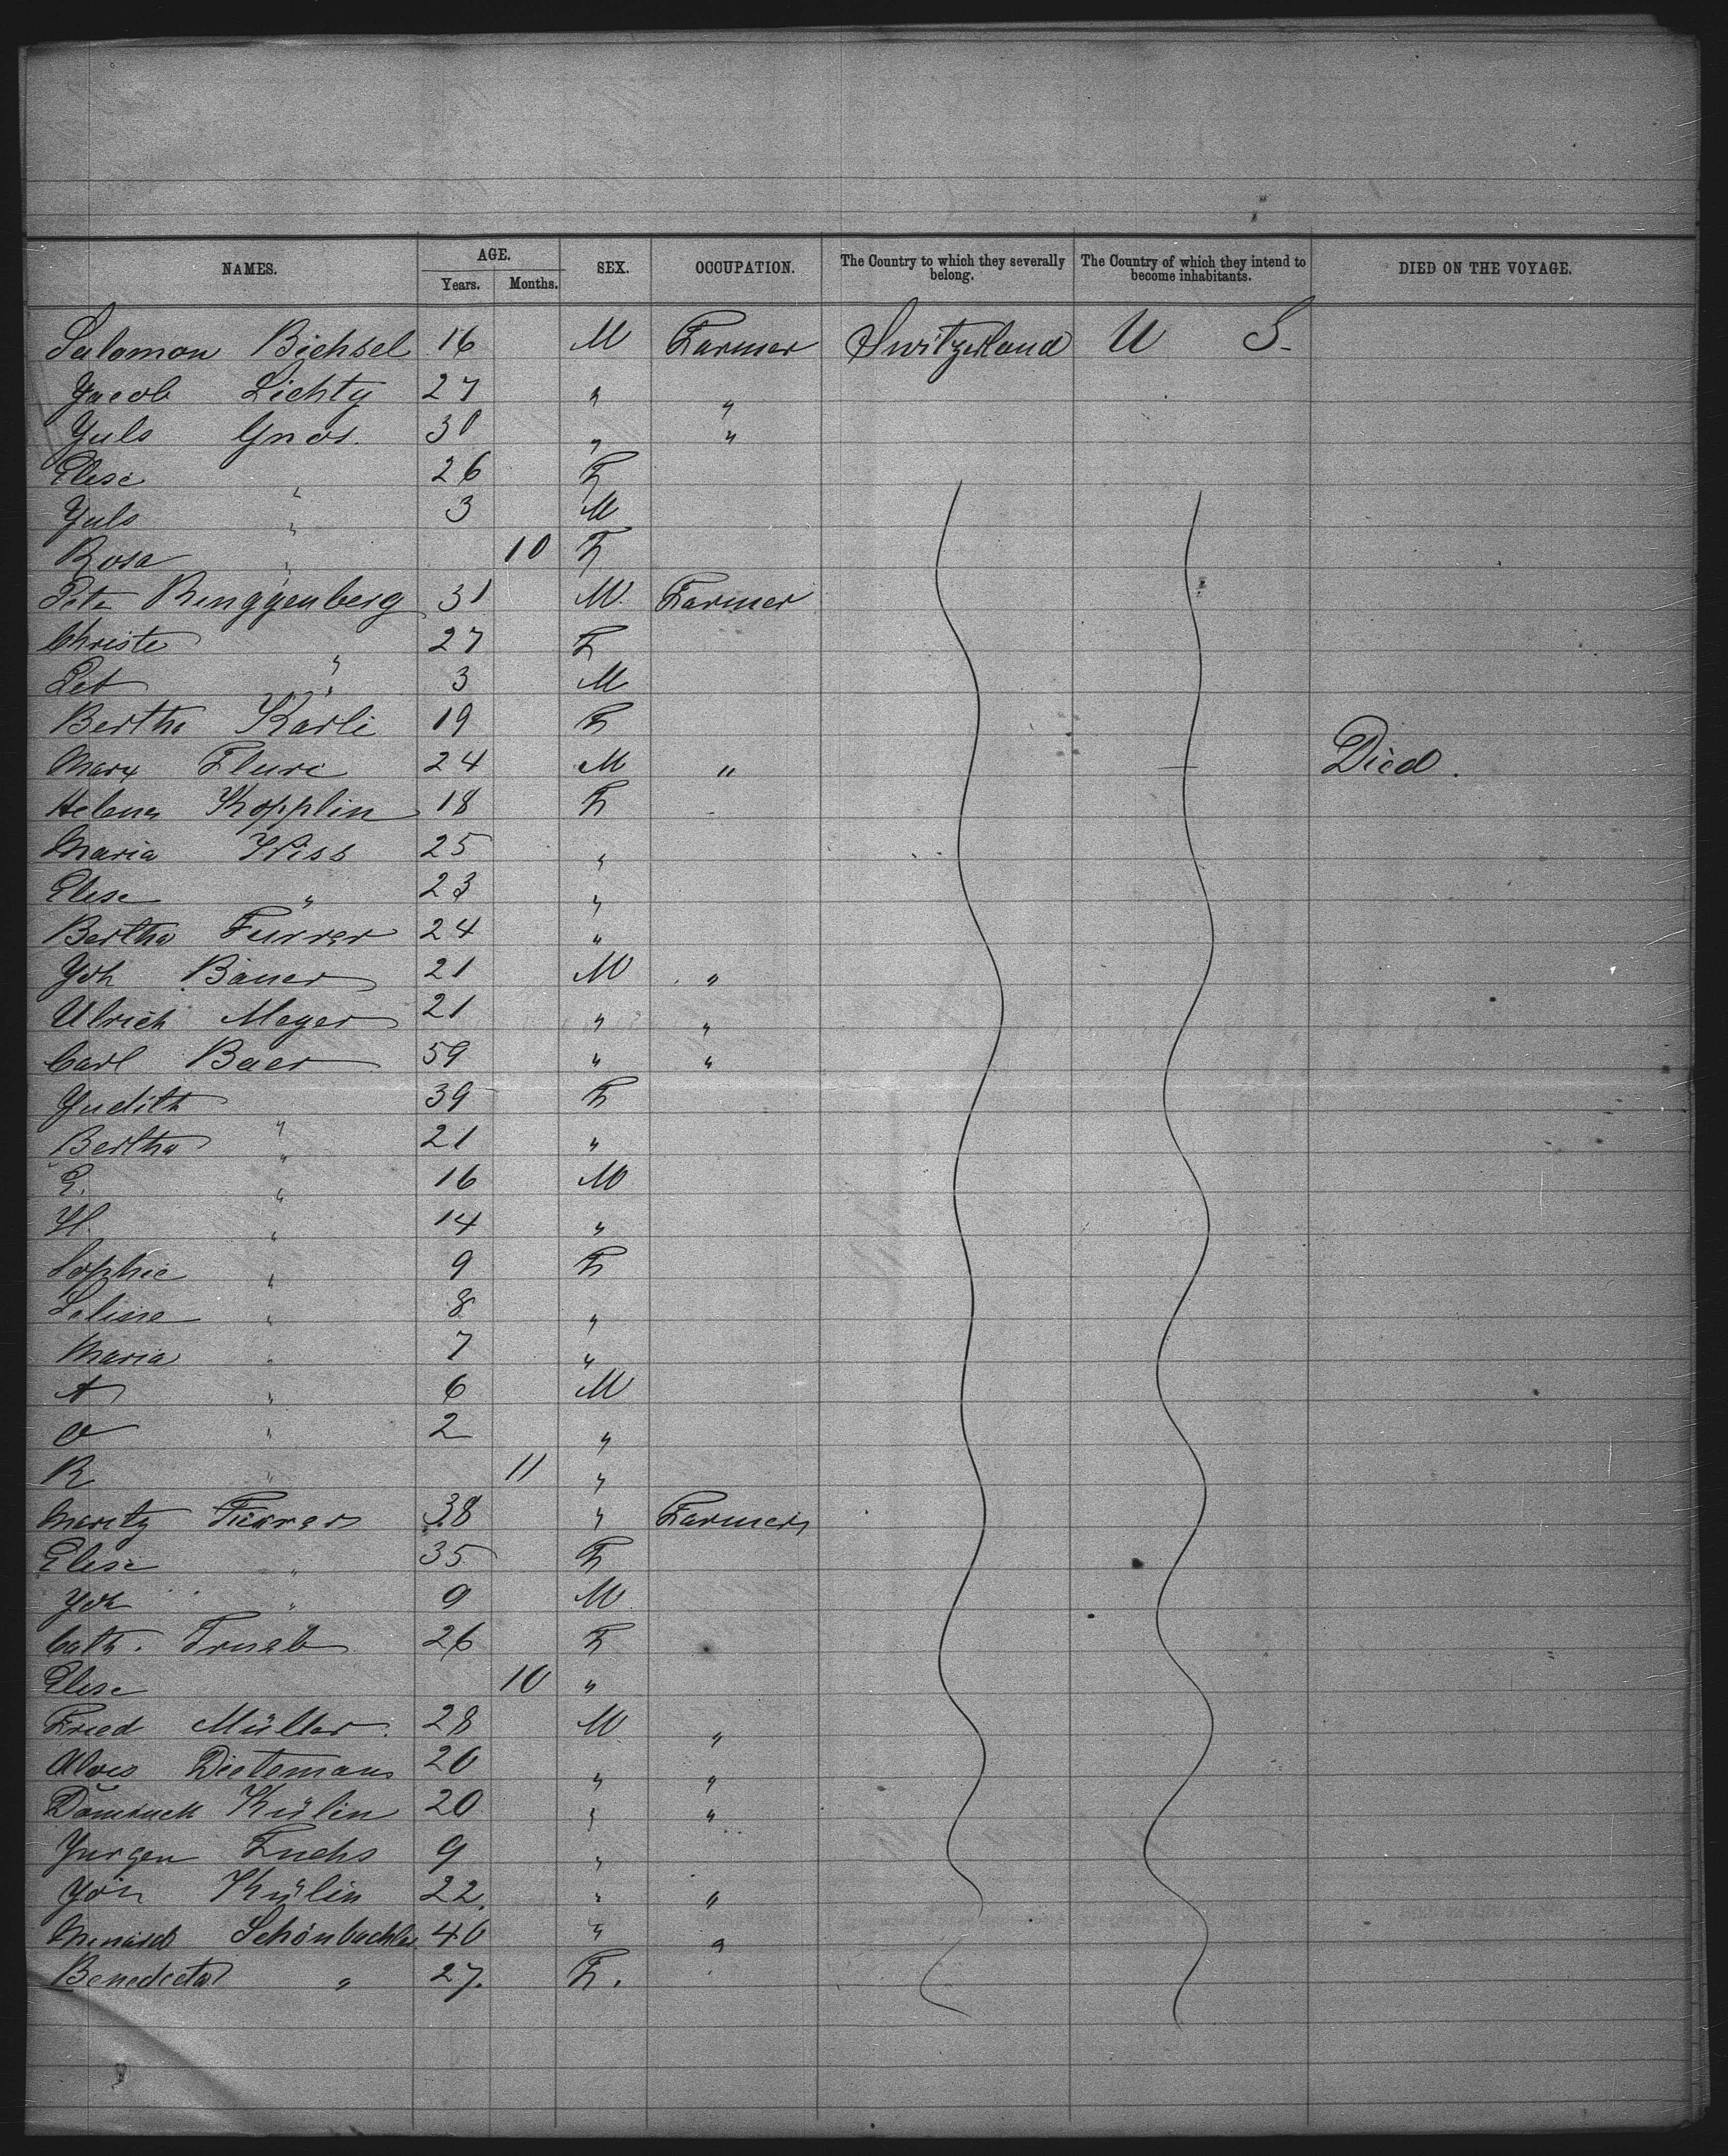 NAMES. AGE. Years. Months. SEX. OCCUPATION. The Country to which they severally belong. The Country of which they intend to become inhabitants. DIED ON THE VOYAGE.
Salomon Bichsel 16 M Farmer Switzerland U S.
Jacob Lichty 27 " "
Juls Gnos. 30 " "
Elise " 26 F
Juls " 3 M
Rosa " 10 F
Pet. Ringgenberg 31 M. Farmer
Christe " 27 F
Pet " 3 M
Bertha Karli 19 F
Marx Fluri 24 M " Died.
Helena Kopplin 18 F
Maria Wiss 25 "
Elise " 23 "
Bertha Furrer 24 "
Joh Bauer 21 M "
Ulrich Meyer 21 " "
Carl Baer 59 " "
Judith " 39 F
Bertha " 21 "
E. " 16 M
H. " 14 "
Sophie " 9 F
Seline " 8 "
Maria " 7 "
A " 6 M
O " 2 "
R " 11 "
Moritz Furrer 38 " Farmer
Elise " 35 F
Joh " 9 M
Cath. Trueb 26 F
Elise 10 "
Fried Müller. 28 M "
Alois 20 " "
Kälin 20 " "
Jurgen Fuchs 9 "
Joh Kälin 22. " "
Schönbachler 40 " "
Benedicta " 27. F.